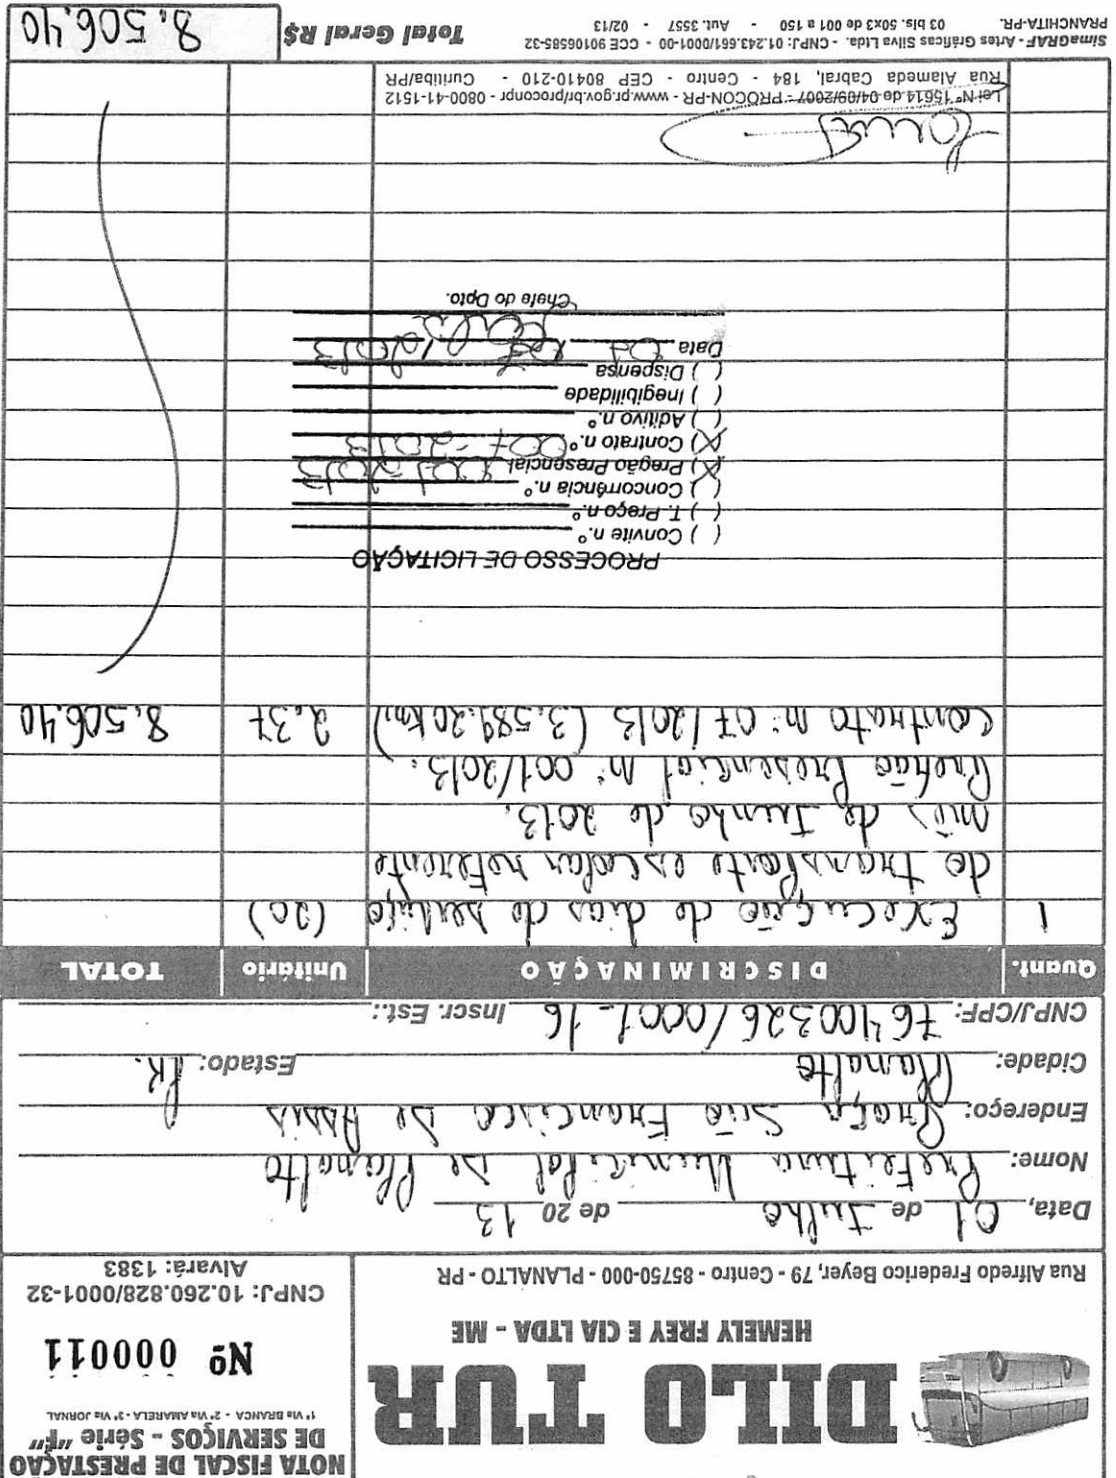 NOTA FISCAL DE PRESTAÇÃO
DE SERVIÇOS - Série "F"
1ª Via BRANCA - 2ª Via AMARELA - 3ª Via JORNAL
Nº 000011
CNPJ: 10.260.828/0001-32
Alvará: 1383
DILO TUR
HEMELY FREY E CIA LTDA - ME
Rua Alfredo Frederico Beyer, 79 - Centro - 85750-000 - PLANALTO - PR
Data, 01 de Julho de 20 13
Nome: Prefeitura Municipal De Planalto
Endereço: Praça São Francisco De Assis
Cidade: Planalto Estado: PR.
CNPJ/CPF: 76400326/0001-16 Inscr. Est.:
Quant. DISCRIMINAÇÃO Unitário TOTAL
1 Execução de dias do serviço (20)
do transporte escolar referente
mês de Junho de 2013.
Pregão Presencial nº 001/2013.
Contrato nº 07/2013 (3.589.20 km) 2,37 8.506.40
PROCESSO DE LICITAÇÃO
( ) Convite n.º
( ) T. Preço n.º
( ) Concorrência n.º
(X) Pregão Presencial 001-2013
(X) Contrato n.º 007-2013
( ) Aditivo n.º
( ) Inegibilidade
( ) Dispensa
Data 01 / 07 / 2013
Chefe do Dpto.
Lei Nº 15614 de 04/09/2007 - PROCON-PR - www.pr.gov.br/proconpr - 0800-41-1512
Rua Alameda Cabral, 184 - Centro - CEP 80410-210 - Curitiba/PR
SimaGRAF - Artes Gráficas Silva Ltda. - CNPJ: 01.243.661/0001-00 - CCE 90106585-32
PRANCHITA-PR. 03 bls. 50x3 de 001 a 150 - Aut. 3557 - 02/13
Total Geral R$ 8.506.40